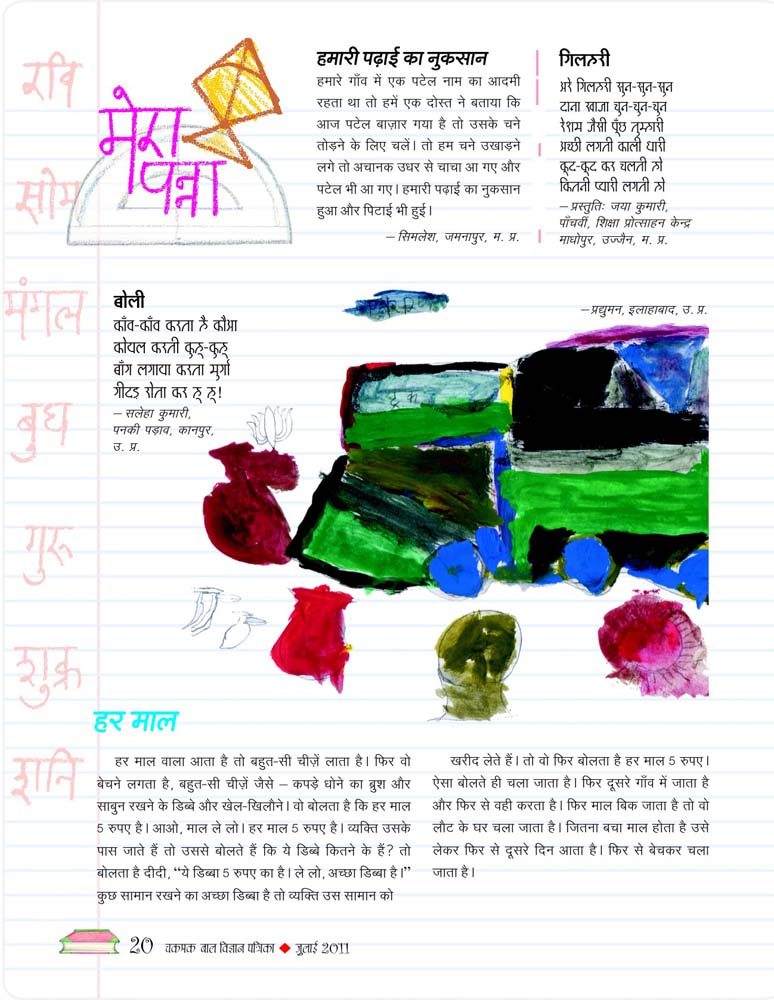 रवि
सोम
मंगल
बुध
गुरु
शुक्र
शनि
मेरा
पन्ना
हमारी पढ़ाई का नुकसान
हमारे गाँव में एक पटेल नाम का आदमी
रहता था तो हमें एक दोस्त ने बताया कि
आज पटेल बाज़ार गया है तो उसके चने
तोड़ने के लिए चलें। तो हम चने उखाड़ने
लगे तो अचानक उधर से चाचा आ गए और
पटेल भी आ गए। हमारी पढ़ाई का नुकसान
हुआ और पिटाई भी हुई।
– सिमलेश, जमनापुर, म. प्र.
गिलहरी
अरे गिलहरी सुन-सुन-सुन
दाना खाजा चुन-चुन-चुन
रेशम जैसी पूँछ तुम्हारी
अच्छी लगती काली धारी
कूट-कूट कर चलती हो
कितनी प्यारी लगती हो
– प्रस्तुतिः जया कुमारी,
पाँचवीं, शिक्षा प्रोत्साहन केन्द्र
माधोपुर, उज्जैन, म. प्र.
बोली
काँव-काँव करता है कौआ
कोयल करती कुहू-कुहू
बाँग लगाया करता मुर्गा
गीदड़ रोता कर हू हू!
– सलेहा कुमारी,
पनकी पड़ाव, कानपुर,
उ. प्र.
– प्रद्युमन, इलाहाबाद, उ. प्र.
ट्रक
हर माल
हर माल वाला आता है तो बहुत-सी चीज़ें लाता है। फिर वो
बेचने लगता है, बहुत-सी चीज़ें जैसे – कपड़े धोने का ब्रुश और
साबुन रखने के डिब्बे और खेल-खिलौने। वो बोलता है कि हर माल
5 रुपए है। आओ, माल ले लो। हर माल 5 रुपए है। व्यक्ति उसके
पास जाते हैं तो उससे बोलते हैं कि ये डिब्बे कितने के हैं? तो
बोलता है दीदी, “ये डिब्बा 5 रुपए का है। ले लो, अच्छा डिब्बा है।”
कुछ सामान रखने का अच्छा डिब्बा है तो व्यक्ति उस सामान को
खरीद लेते हैं। तो वो फिर बोलता है हर माल 5 रुपए।
ऐसा बोलते ही चला जाता है। फिर दूसरे गाँव में जाता है
और फिर से वही करता है। फिर माल बिक जाता है तो वो
लौट के घर चला जाता है। जितना बचा माल होता है उसे
लेकर फिर से दूसरे दिन आता है। फिर से बेचकर चला
जाता है।
20 चकमक बाल विज्ञान पत्रिका ◆ जुलाई 2011